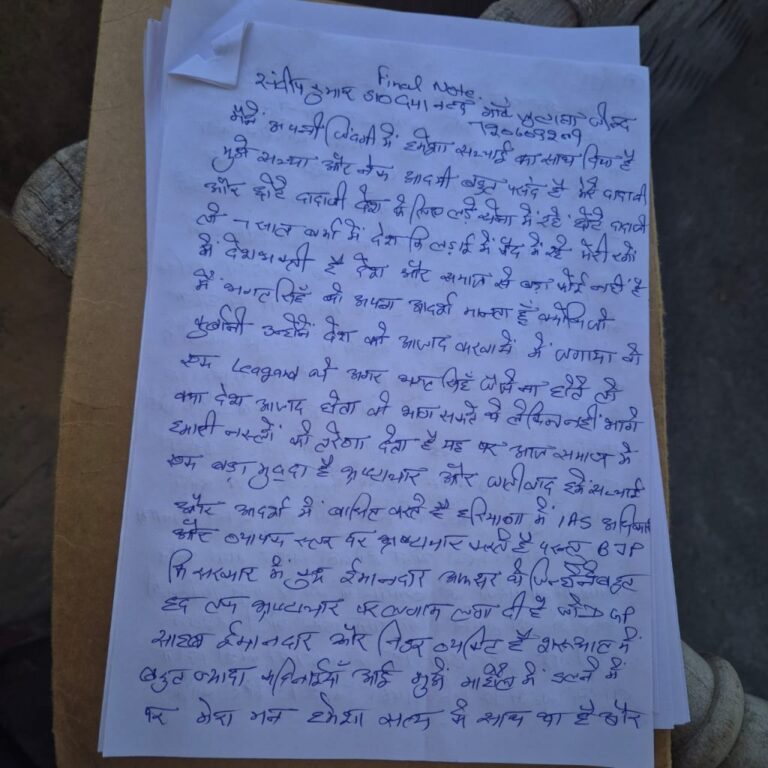 Final Note.
संदीप कुमार S/O दयानन्द गांव जुलाना जीन्द
मैंने अपनी जिंदगी में हमेशा सच्चाई का साथ दिया है
मुझे सच्चा और नेक आदमी बहुत पसंद है मेरे दादाजी
और छोटे दादाजी देश के लिए लड़े सेना में रहे छोटे दादाजी
तो 7 साल बर्मा में देश कि लड़ाई में कैद में रहे मेरी रगों
में देशभक्ती है देश और समाज से बड़ा कोई नहीं है
मैं भगतसिंहँ को अपना आदर्श मानता हूँ क्योंकि जो
कुर्बानी उन्होंने देश को आजाद करवाने में लगाया वो
एक Leagand थे अगर भगतसिहँ जैसे ना होते तो
क्या देश आजाद होता वो भाग सकते थे लेकिन नहीं भागे
हमारी नस्लों को प्रेरणा देता है यह पर आज समाज में
एक बड़ा मुददा है भ्रष्टाचार और जातीवाद हमें सच्चाई
और आदर्श में बाधित करते है हरियाणा में IAS अधिकारी
और व्यापक स्तर पर भ्रष्टाचार करते है परन्तु BJP
कि सरकार में कुछ ईमानदार अफसर थे जिन्होंने बहुत
हद तक भ्रष्टाचार पर लगाम लगा दी है
साहब ईमानदार और निडर व्यक्ति है शुरूआत में
बहुत ज्यादा कठिनाईयाँ आई मुझे माहौल में ढलने में
पर मेरा मन हमेशा सत्य के साथ था है और